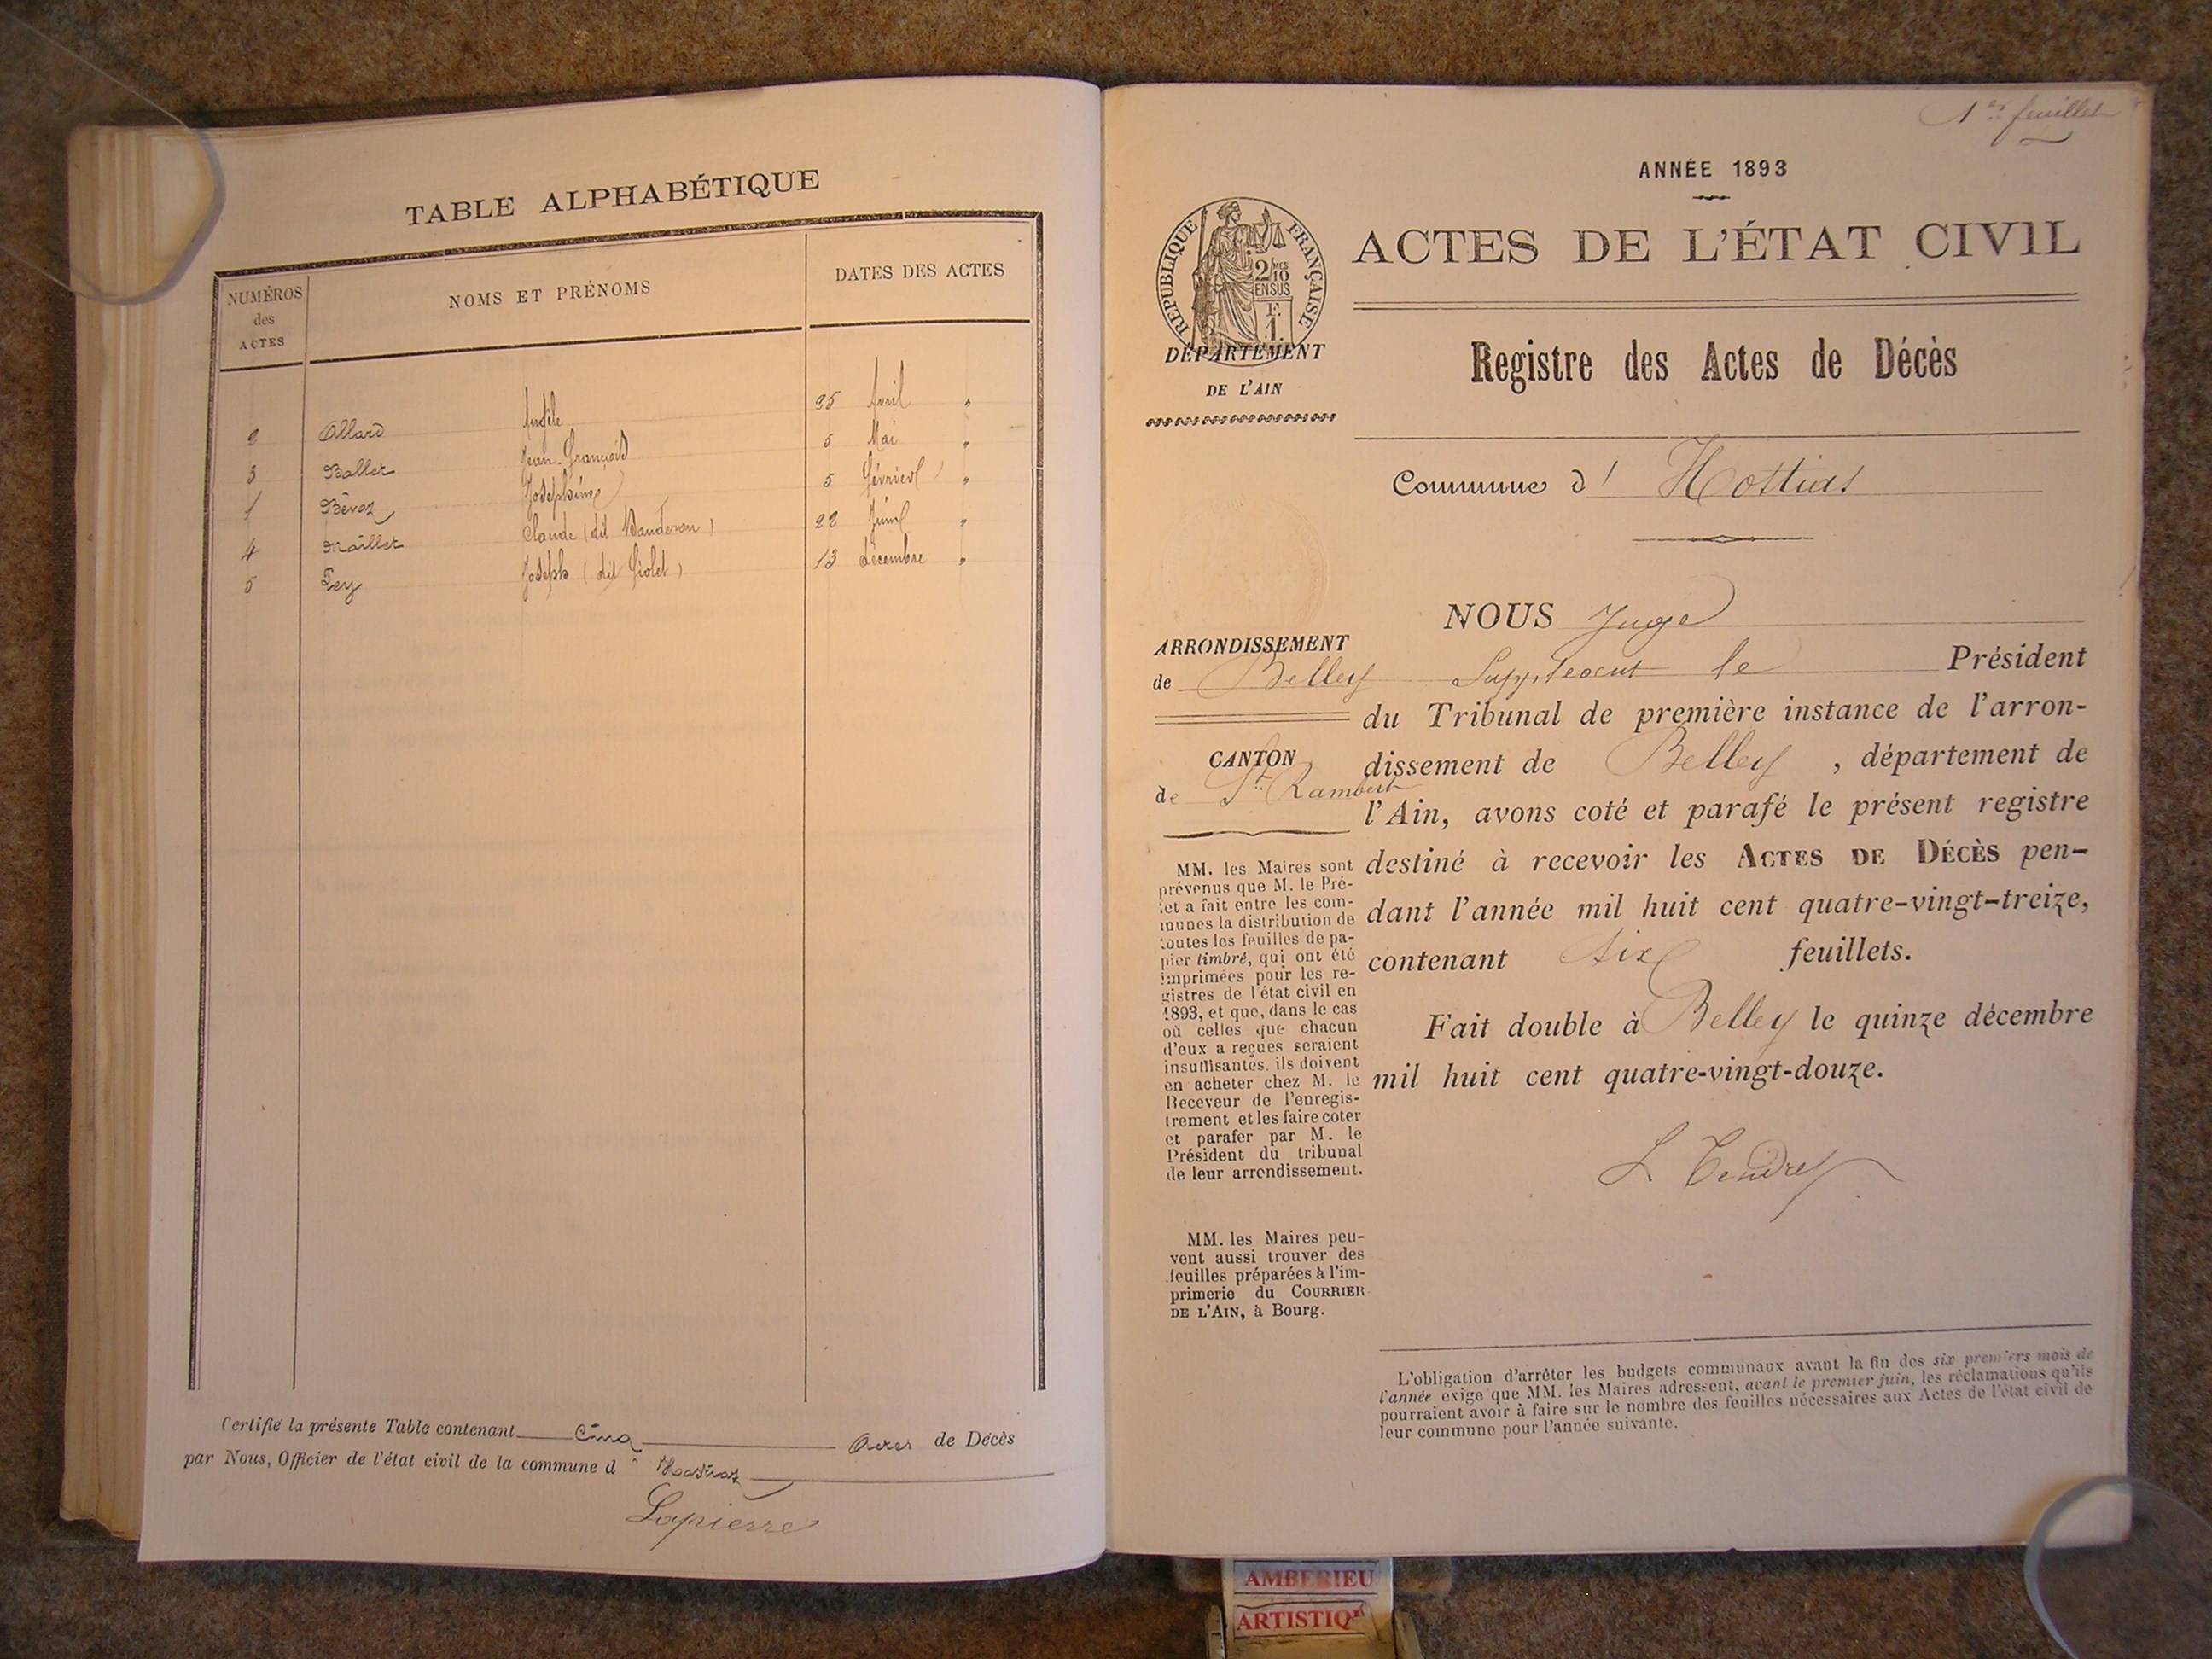 TABLE ALPHABÉTIQUE
NUMÉROS des ACTES
NOMS ET PRÉNOMS
DATES DES ACTES
2 Allard Angèle 25 Avril "
3 Ballet Jean-François 5 Mai "
1 Bévoz Joséphine 5 Février "
4 Maillet Claude (dit 22 Juin "
5 Pey Joseph (dit Violet) 13 décembre "
Certifié la présente Table contenant Cinq Actes de Décès
par Nous, Officier de l'état civil de la commune d' Hostiaz
Lapierre
1er feuillet
ANNÉE 1893
RÉPUBLIQUE FRANÇAISE
2/10 MES
EN SUS
F.
1.
ACTES DE L'ÉTAT CIVIL
DÉPARTEMENT
DE L'AIN
Registre des Actes de Décès
Commune d' Hostias
ARRONDISSEMENT
de Belley
CANTON
de St Rambert
MM. les Maires sont
prévenus que M. le Pré-
fet a fait entre les com-
munes la distribution de
toutes les feuilles de pa-
pier timbré, qui ont été
imprimées pour les re-
gistres de l'état civil en
1893, et que, dans le cas
où celles que chacun
d'eux a reçues seraient
insuffisantes, ils doivent
en acheter chez M. le
Receveur de l'enregis-
trement et les faire coter
et parafer par M. le
Président du tribunal
de leur arrondissement.
MM. les Maires peu-
vent aussi trouver des
feuilles préparées à l'im-
primerie du COURRIER
DE L'AIN, à Bourg.
NOUS Juge
Suppléant le Président
du Tribunal de première instance de l'arron-
dissement de Belley, département de
l'Ain, avons coté et parafé le présent registre
destiné à recevoir les ACTES DE DÉCÈS pen-
dant l'année mil huit cent quatre-vingt-treize,
contenant six feuillets.
Fait double à Belley le quinze décembre
mil huit cent quatre-vingt-douze.
L Tendret
L'obligation d'arrêter les budgets communaux avant la fin des six premiers mois de
l'année exige que MM. les Maires adressent, avant le premier juin, les réclamations qu'ils
pourraient avoir à faire sur le nombre des feuilles nécessaires aux Actes de l'état civil de
leur commune pour l'année suivante.
AMBERIEU
ARTISTIQ